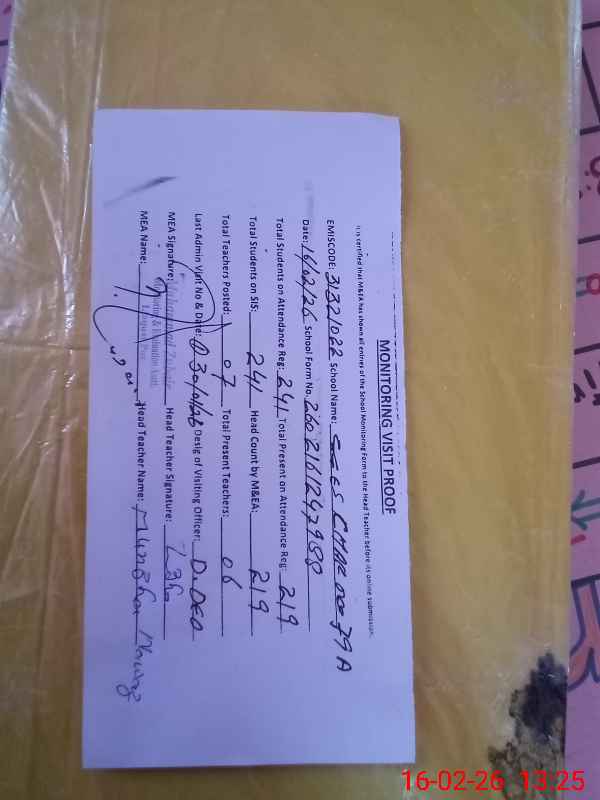 MONITORING VISIT PROOF
It is certified that M&EA has shown all entries of the School Monitoring Form to the Head Teacher before its online submission.
EMISCODE: 31321022 School Name: 79 A
Date: 16/02/26 School Form No. 2602161247988
Total Students on Attendance Reg: 241 Total Present on Attendance Reg: 219
Total Students on SIS: 241 Head Count by M&EA: 219
Total Teachers Posted: 07 Total Present Teachers: 06
Last Admin Visit No & Date: 30/01/26 Desig of Visiting Officer: D.DEO
MEA Signature: Head Teacher Signature:
MEA Name: Head Teacher Name:
16-02-26 13:25